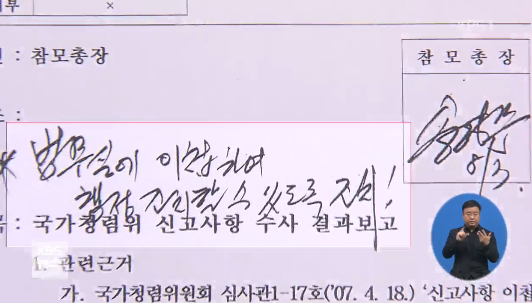 부
×
: 참모총장
참모총장
:
법무실에 이첩하여
9/3.
행정 처리할 수 있도록 지시!
: 국가청렴위 신고사항 수사 결과보고
1. 관련근거
가. 국가청렴위원회 심사관1-17호('07. 4. 18.) '신고사항 이첩